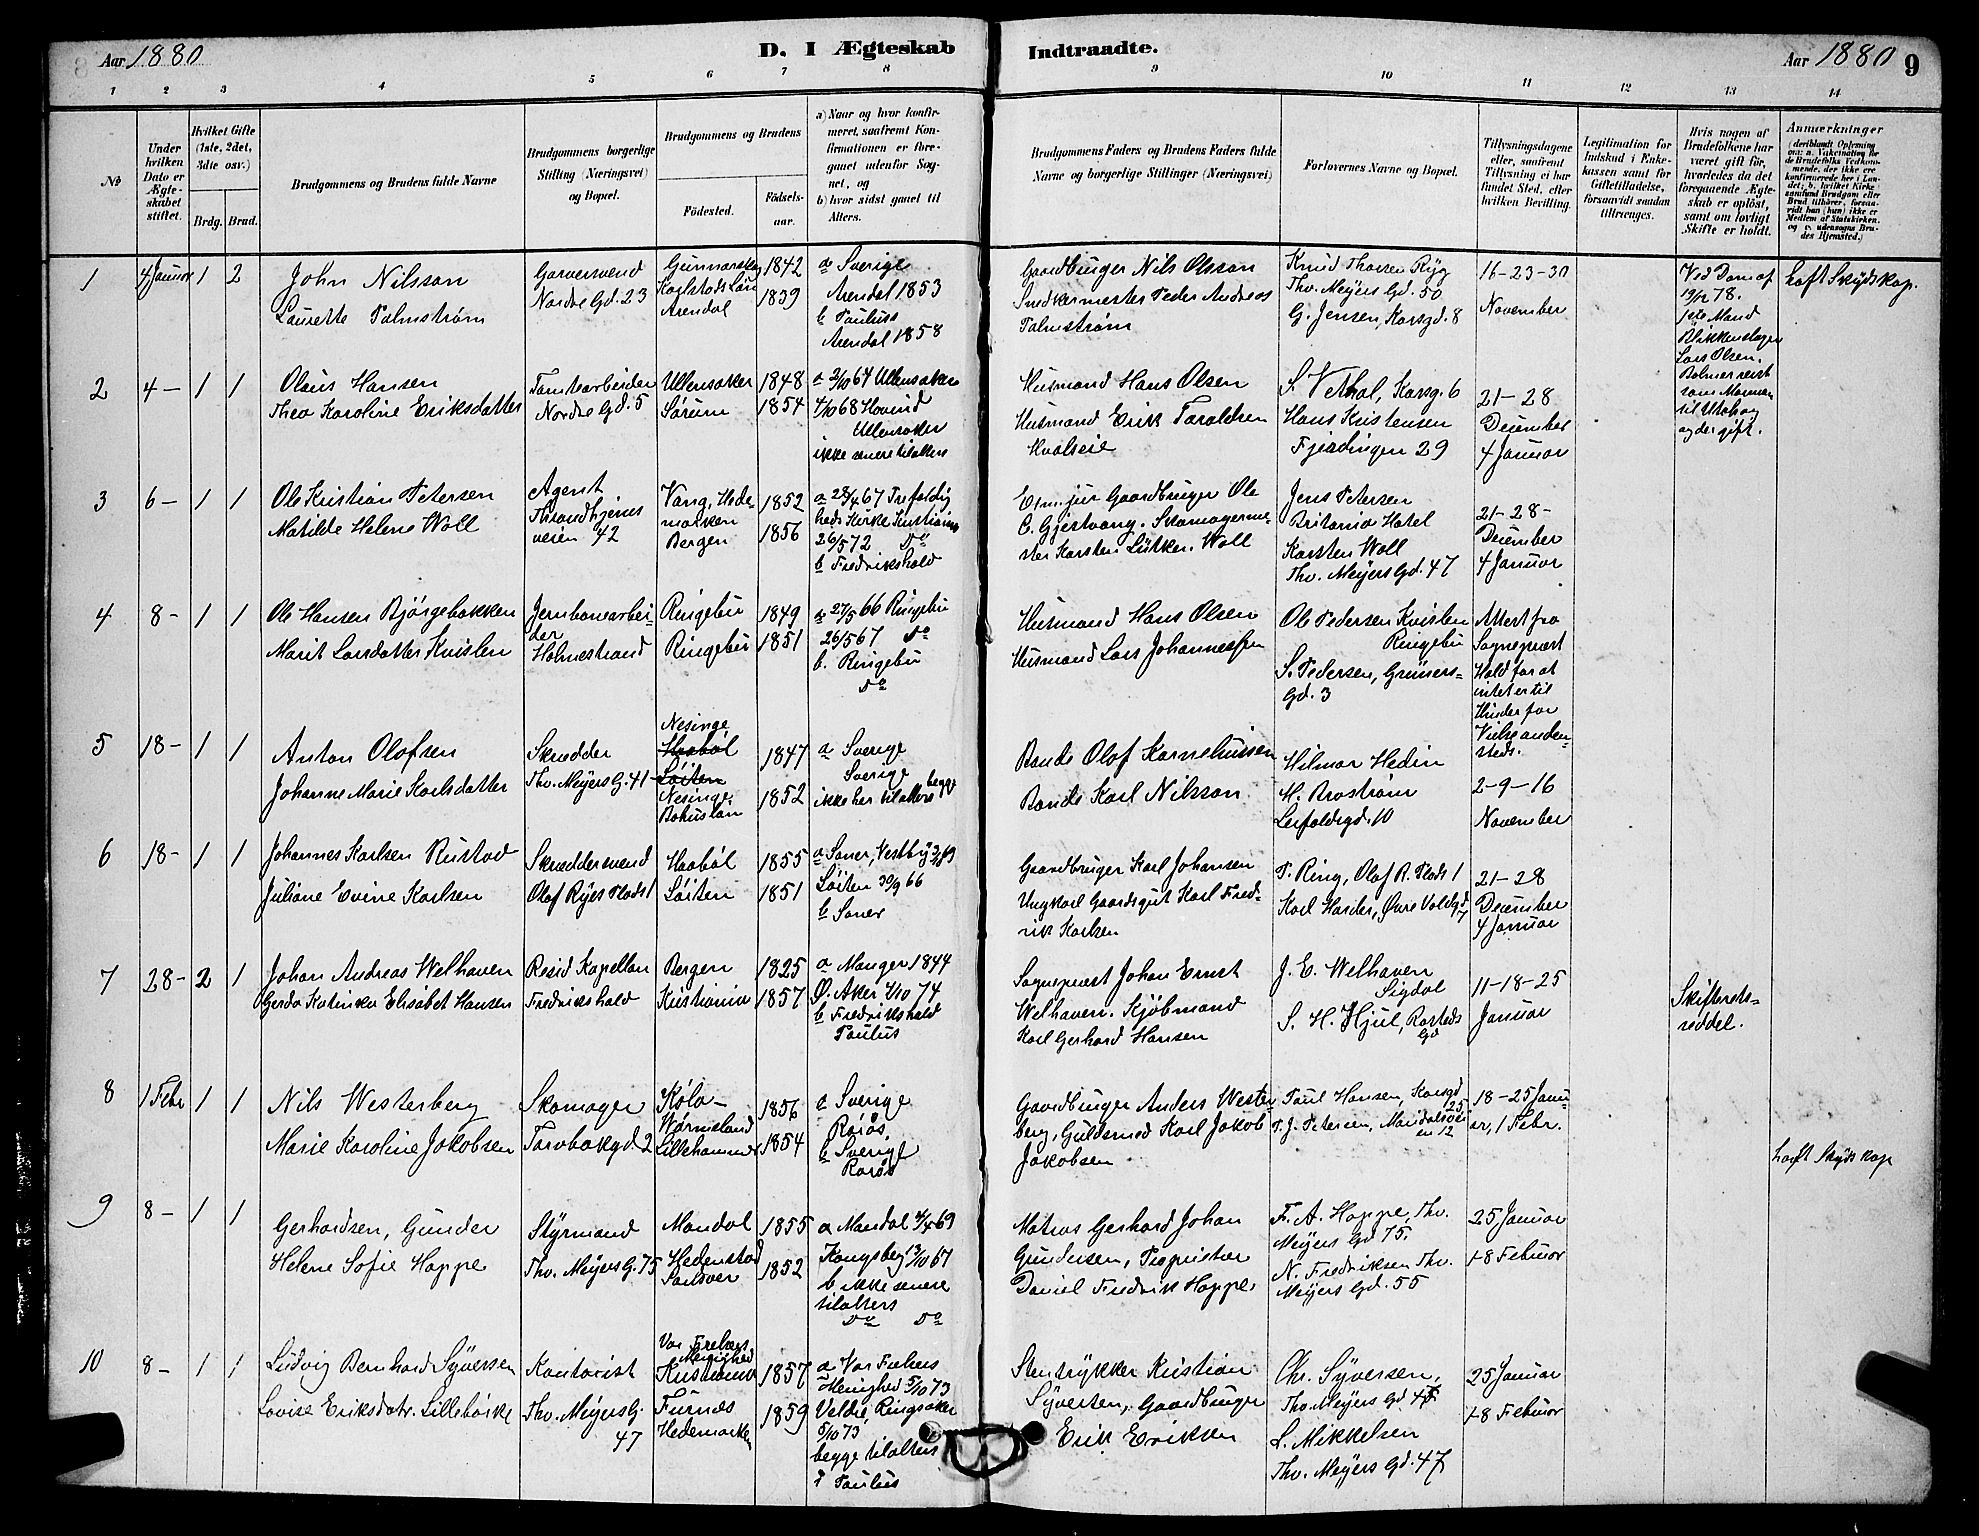 Aar 1880
D. I Ægteskab
Indtraadte.
Aar 1880
9
1 2 3 4 5 6 7 8 9 10 11 12 13 14
№
Under hvilken Dato er Ægteskabet stiftet.
Hvilket Gifte (1ste, 2det, 3die osv.)
Brdg. Brud.
Brudgommens og Brudens fulde Navne
Brudgommens borgerlige Stilling (Næringsvei) og Bopæl.
Brudgommens og Brudens
Födested.
Födselsaar.
a) Naar og hvor konfirmeret, saafremt Konfirmationen er foregaaet udenfor Sognet, og
b) hvor sidst gaaet til Alters.
Brudgommens Faders og Brudens Faders fulde Navne og borgerlige Stillinger (Næringsvei)
Forlovernes Navne og Bopæl.
Tillysningsdagene eller, saafremt Tillysning ei har fundet Sted, efter hvilken Bevilling.
Legitimation for Indskud i Enkekassen samt for Giftetilladelse, forsaavidt saadan tiltrænges.
Hvis nogen af Brudefolkene har været gift för, hvorledes da det foregaaende Ægteskab er oplöst, samt om lovligt Skifte er holdt.
Anmærkninger
1 4 Januar 1 2
John Nilsson
Laurette Palmstrøm
Garversvend
Nordre Gd. 23
Gunnarskog
Karlstads Län
Arendal
1842
1839
a Sverige
Arendal 1853
b Paulus
Arendal 1858
Gaardbruger Nils Olsson
Snedkermester Peder Andreas
Palmstrøm
Knud Thorsen Ryg
Thv. Meyers Gd. 50
G. Jensen, Korsgd. 8
16-23-30
November
Ved Dom af
19/12 78.
1ste Mand
Blikkenslager
Lars Olsen.
Bolmer reist
som Mormon
til Utah og
og der gift.
haft Skydskop.
2 4 - 1 1
Olaus Hansen
Thea Karoline Eriksdatter
Tomtearbeider
Nordre Gd. 5
Ullensaker
Sørum
1848
1854
a 2/10 64 Ullensaker
4/10 68 Hovind
Ullensaker
ikke senere tilalters
Husmand Hans Olsen
Husmand Erik Taraldsen
Kvalseie
S. Vethal, Korsg. 6
Hans Kristensen
Fjerdingen 29
21-28
December
4 Januar
3 6 - 1 1
Ole Kristian Petersen
Matilde Helene Woll
Agent
Throndhjems
veien 42
Vang, Hede-
marken
Bergen
1852
1856
a 28/4 67 Trefoldig
heds Kirke Kristiania
26/5 72 Do
b Fredrikshald
Ole
C. Gjestvang. Skomagerme-
ster Karsten Lütken. Woll
Jens Petersen
Britania Hotel
Karsten Woll
Thv. Meyers Gd. 47
21-28-
December
4 Januar
4 8 - 1 1
Ole Hansen Bjørgebakken
Marit Larsdatter Kvislen
Jernbanearbei-
der
Holmestrand
Ringebu
Ringebu
1849
1851
a 27/5 66 Ringebu
26/5 67 Do
b. Ringebu
Do
Husmand Hans Olsen
Husmand Lars Johannessen
Ole Pedersen Kvislen
Ringebu
S. Pedersen, Grüners-
gd. 3
Attest fra
Sognepræst
Hald for at
intet er til
Hinder for
Vielse anden-
steds.
5 18 - 1 1
Anton Olofsen
Johanne Marie Karlsdatter
Skrædder
Thv. Meyers G. 41
Nesinge
Haabøl
Løiten
Nesinge
Bohuslän
1847
1852
a Sverige
Sverige
ikke her tilalters begge
Bonde Olof Kornehuisen
Bonde Karl Nilsson
Hilmar Hedin
H. Brostrøm
Leifoldsgd. 10
2-9-16
November
6 18 - 1 1
Johannes Karlsen Rustad
Juliane Evine Karlsen
Skræddersvend
Olaf Ryes Plads 1
Haabøl
Løiten
1855
1851
a Soner, Vestby
Løiten 30/9 66
b Soner
Gaardbruger Karl Johansen
Ungkarl Gaardsgut Karl Fred-
rik Karlsen
P. Ring, Olaf R. Plads 1
Karl Harder, Øvre Voldgd
7
21-28
December
4 Januar
7 28 - 2 1
Johan Andreas Welhaven
Gerda Katinka Elisabet Hansen
Resid Kapellan
Fredrikshald
Bergen
Kristiania
1825
1857
a Manger 1844
Ø. Aker 4/10 74
b Fredrikshald
Paulus
Sognepræst Johan Ernst
Welhaven. Kjøbmand
Karl Gerhard Hansen
J. E. Welhaven
Sigdal
S. H. Hjul, Rosteds
gd
11-18-25
Januar
Skifterets-
seddel.
8 1 Febr 1 1
Nils Westerberg
Marie Karoline Jakobsen
Skomager
Torvbakgd. 2
Køla -
Wärmeland
Lillehammer
1856
1854
a Sverige
Rørøs,
b Sverige
Rørøs
Gaardbruger Anders Wester
berg, Guldsmed Karl Jakob
Jakobsen
Paul Hansen, Korsgd
25
P. J. Petersen, Maridalsvei
en 12
18-25 Janu-
ar, 1 Febr.
haft Skydskop
9 8 - 1 1
Gerhardsen, Gunder
Helene Sofie Hoppe
Styrmand
Thv. Meyers G. 75
Mandal
Hedenstad
Sandsvær
1855
1852
a Mandal 4/4 69
Kongsberg 13/10 67
b ikke senere
tilalters
Do Do
Matros Gerhard Johan
Gundersen, Proprietær
Daniel Fredrik Hoppe.
F. A. Hoppe, Thv.
Meyers Gd 75.
N. Fredriksen Thv.
Meyers Gd. 55
25 Januar
1-8 Februar
10 8 - 1 1
Ludvig Bernhard Syversen
Lovise Eriksdatr. Lillehøike
Kontorist
Thv. Meyers G.
47
Vor Frelsers
Menighed
Kristiania
Furnes
Hedemarken
1857
1859
a Vor Frelsers
Menighed 5/10 73
Veldre, Ringsaker
5/10 73
begge tilalters
i Paulus
Stentrykker Kristian
Syversen, Gaardbruger
Erik Eriksen
Chr. Syversen,
Thv. Meyers Gd 47
L. Mikkelsen
Thv. Meyers Gd. 47
25 Januar
1-8 Februar